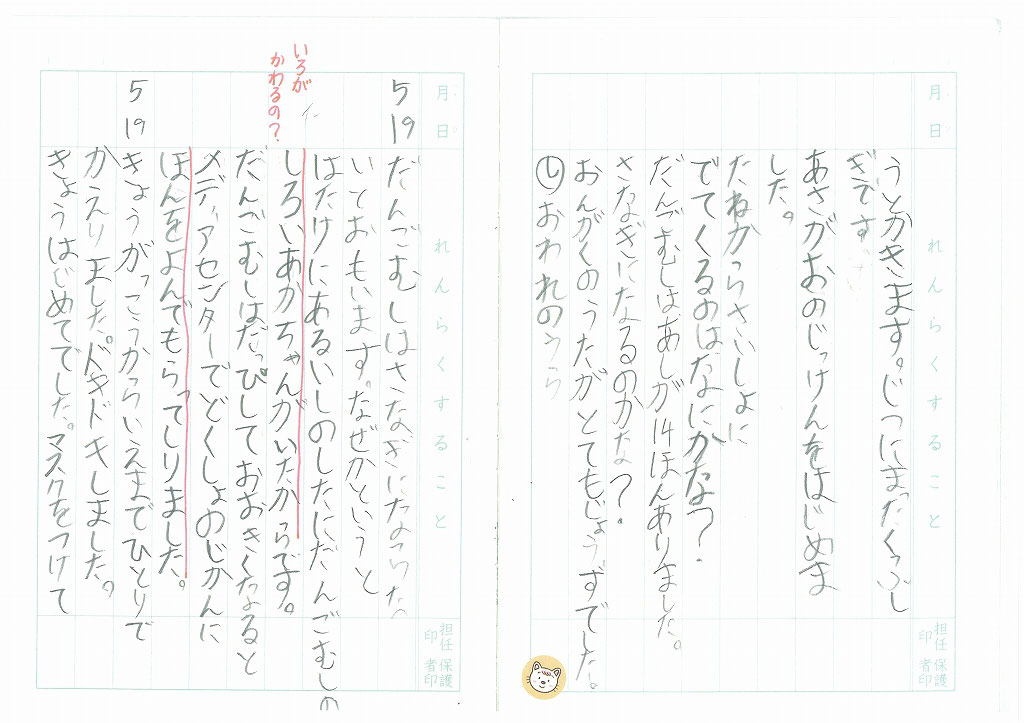 月日
れんらくすること
担任印
保護者印
うとかきます。じつにまったくふし
ぎです
あさがおのじっけんをはじめま
した。
たねからさいしょに
でてくるのはなにかな?
だんごむしはあしが14ほんありました。
さなぎになるのかな?
おんがくのうたがとてもじょうずでした。
おわれのうら
月日
れんらくすること
担任印
保護者印
5 19
だんごむしはさなぎになったな
いておもいます。なぜかというと
はたけにあるいしのしたにだんごむしの
いろが
かわるの?
しろいあかちゃんがいたからです。
だんごむしはだっぴしておおきくなると
メディアセンターでどくしょのじかんに
ほんをよんでもらってしりました。
5 19
きょうがっこうからいえまでひとりで
かえりました。ドキドキしました。
きょうはじめてでした。マスクをつけて